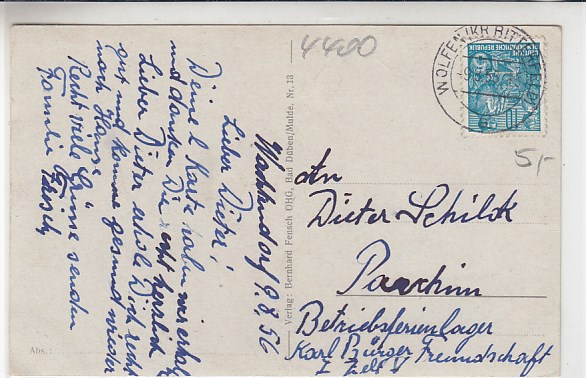 4400
WOLFEN (KR BITTERFELD)
DEUTSCHE DEMOKRATISCHE REPUBLIK
10
5,-
9.7.56
Lieber Dieter!
Deine l Karte haben wir erhalten
und danken Dir recht herzlich
Lieber Dieter erhole Dich recht
gut und komme gesund wieder
nach Hause
Recht viele Grüsse senden
Familie
Abs.:
Verlag: Bernhard Fensch OHG, Bad Düben/Mulde, Nr. 13
An
Dieter Schilsk
Parchim
Betriebsferienlager
Karl Bürger Freundschaft
I Zelt V